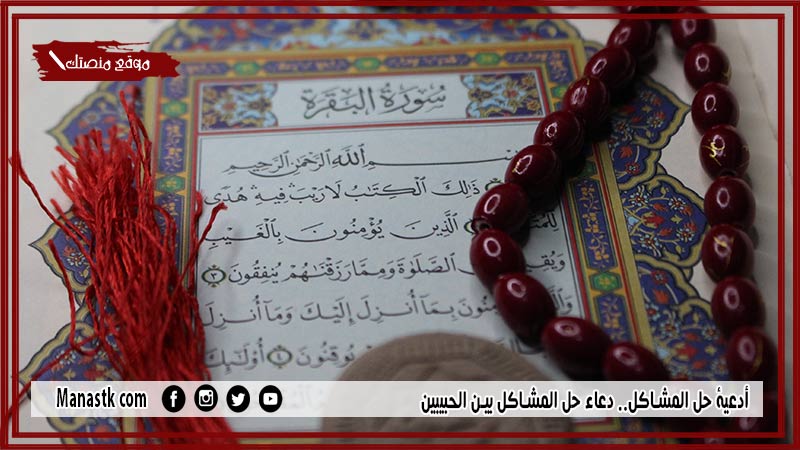 موقع منصتك
سُورَةُ البَقَرَةِ
اللَّهِ الرَّحْمَٰنِ الرَّحِيمِ
ذَٰلِكَ الْكِتَٰبُ لَا رَيْبَ فِيهِ هُدًى
الَّذِينَ يُؤْمِنُونَ بِالْغَيْبِ
الصَّلَوٰةَ وَمِمَّا رَزَقْنَٰهُمْ يُنفِقُونَ ٣
بِمَآ أُنزِلَ إِلَيْكَ وَمَآ أُنزِلَ
يُوقِنُونَ ٤ أُولَٰٓئِكَ
أدعية حل المشاكل.. دعاء حل المشاكل بين الحبيبين
Manastk com